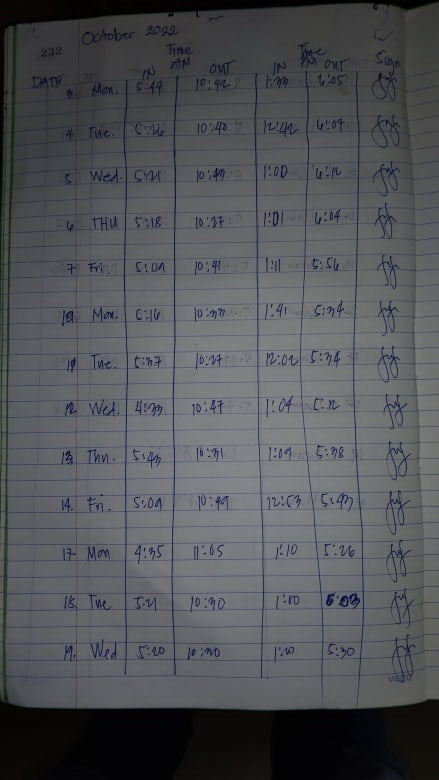 232 October 2022
Time Time
AM PM
DATE IN OUT IN OUT Sign
3. Mon. 5:44 10:42 1:33 6:05
4. Tue. 5:26 10:40 12:42 6:07
5 Wed. 5:21 10:49 1:00 6:12
6 THU 5:18 10:27 1:01 6:04
7 Fri 5:09 10:41 1:11 5:56
10. Mon. 5:16 10:33 1:41 5:34
11 Tue. 5:37 10:27 12:02 5:34
12. Wed. 4:33 10:47 1:04 5:12
13. Thu. 5:43 10:31 1:09 5:38
14. Fri. 5:09 10:49 12:53 5:43
17. Mon 4:35 11:05 1:10 5:26
18. Tue 5:21 10:30 1:00
19. Wed 5:20 10:30 1:20 5:30